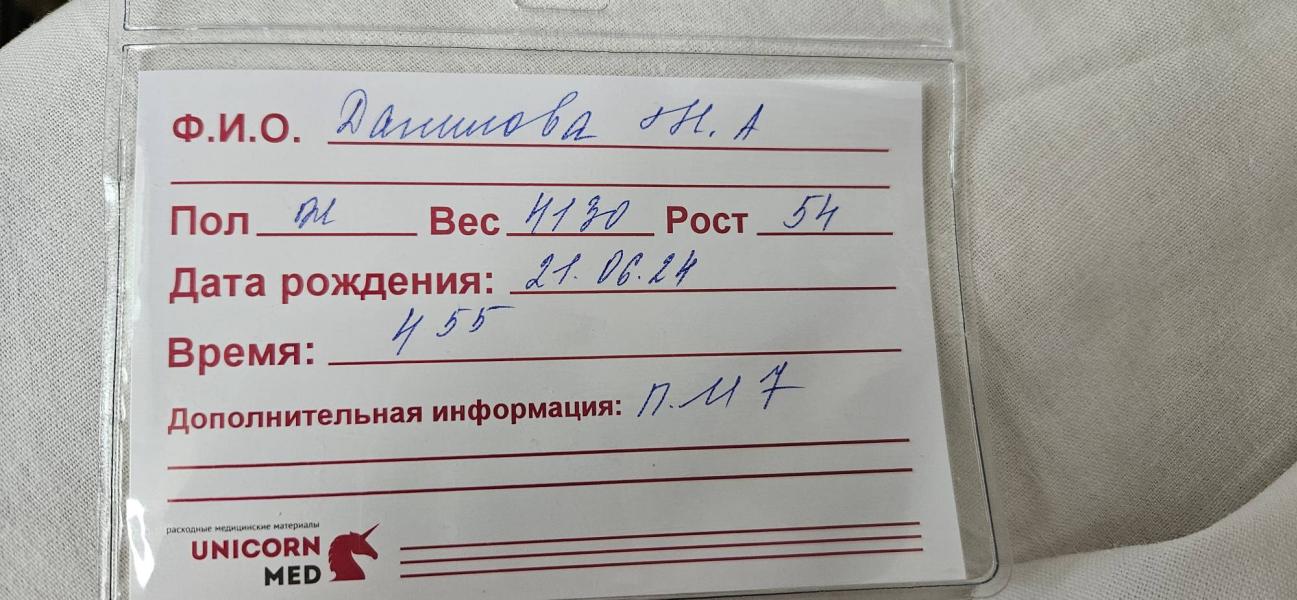 Ф.И.О. Данилова Н. А
Пол ж Вес 4130 Рост 54
Дата рождения: 21.06.24
Время: 4 55
Дополнительная информация: П.М 7
расходные медицинские материалы
UNICORN
MED